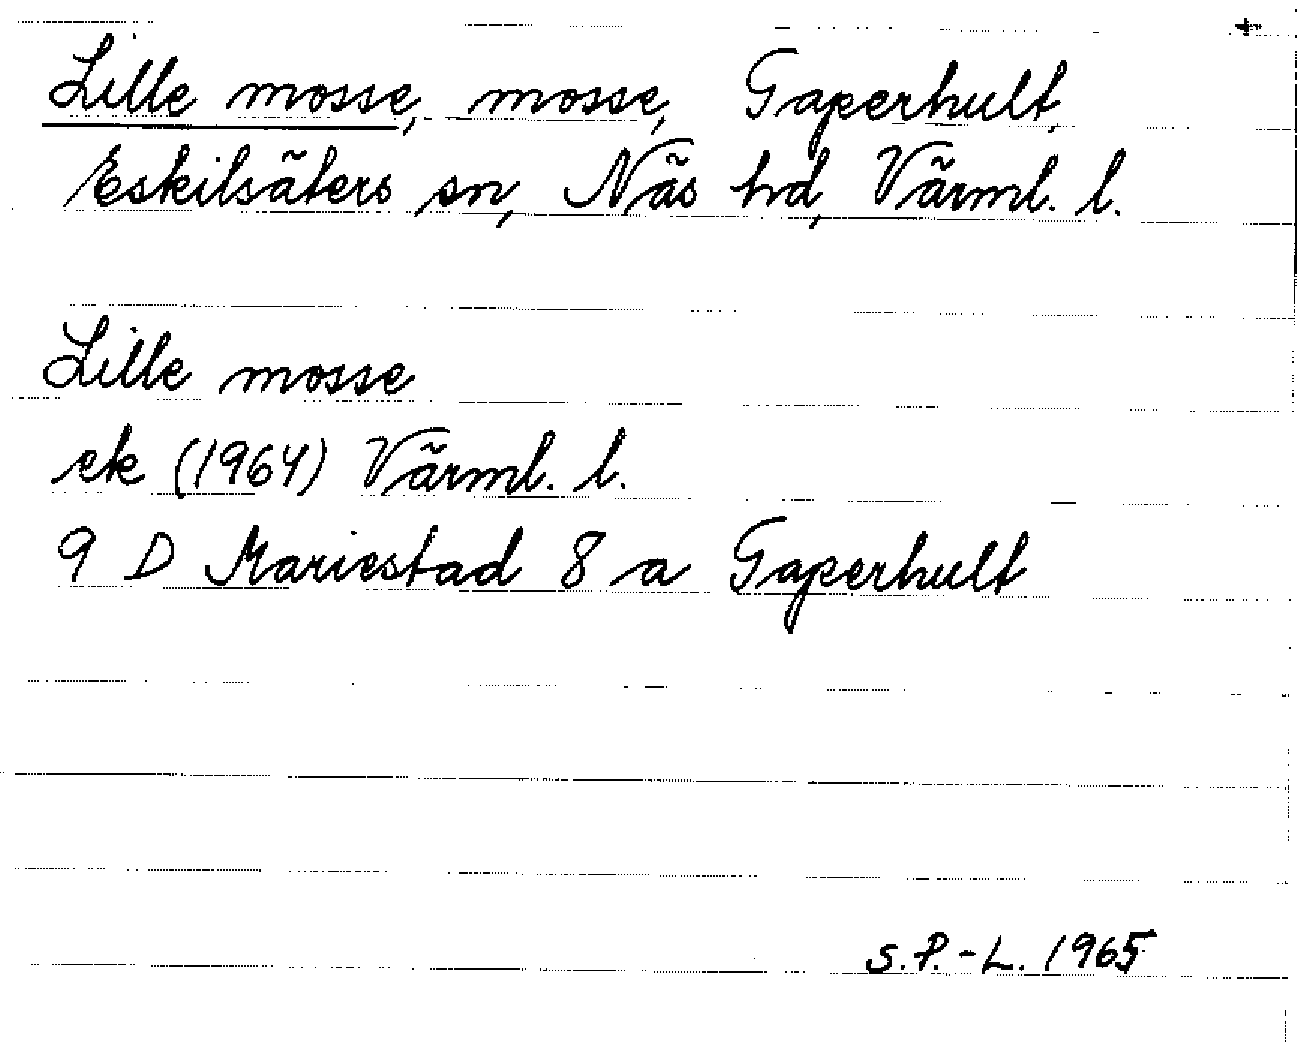 +
Lille mosse, mosse, Gaperhult,
Eskilsäters sn, Näs hd, Värml. l.
Lille mosse
ek (1964) Värml. l.
9 D Mariestad 8 a Gaperhult
S.P.-L. 1965